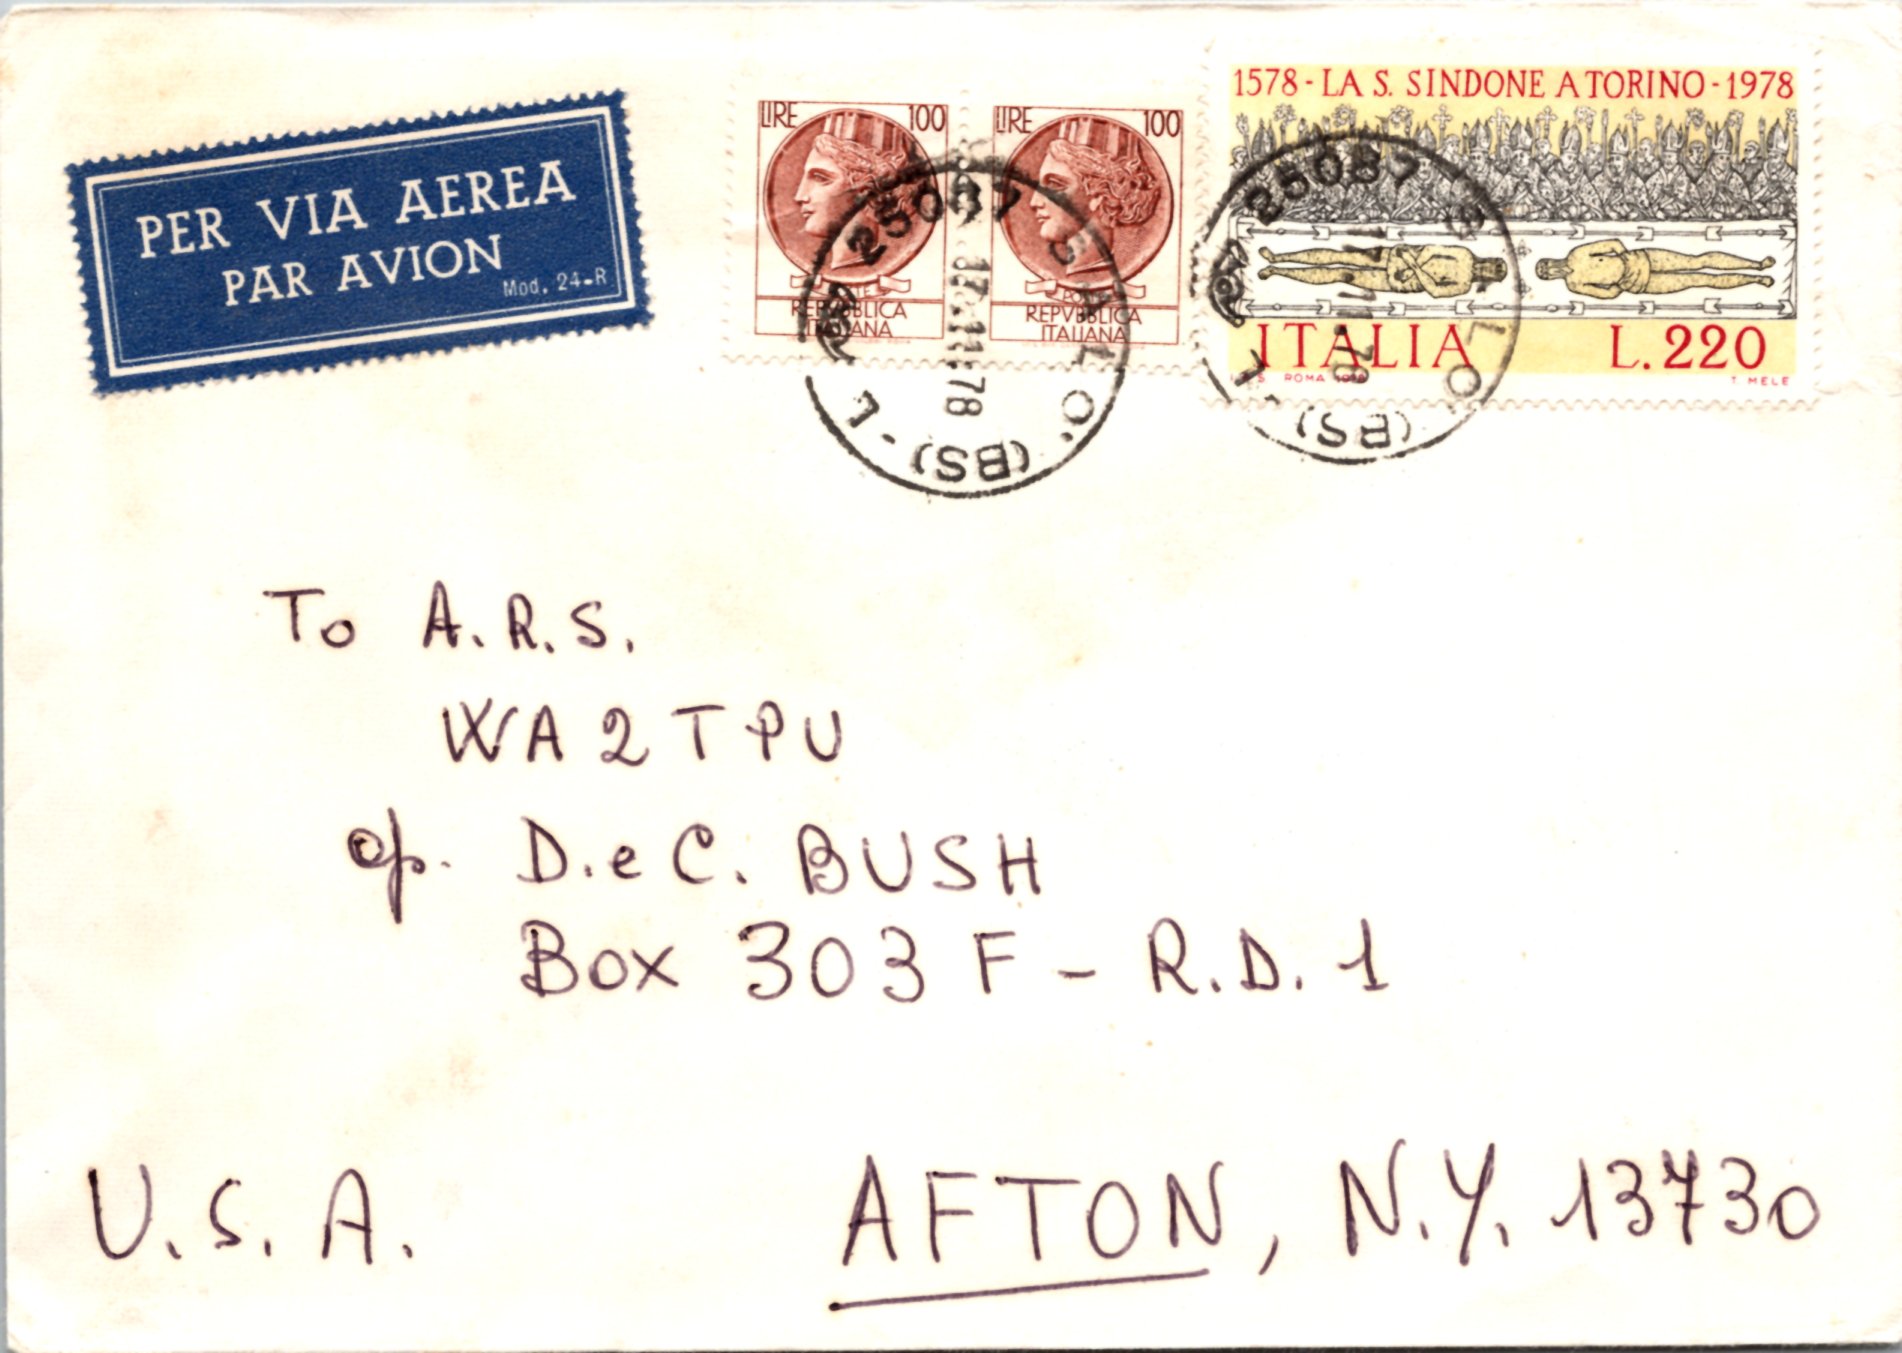 PER VIA AEREA
PAR AVION
Mod. 24-R
LIRE 100
REPVBBLICA
ITALIANA
LIRE 100
REPVBBLICA
ITALIANA
1578 - LA S. SINDONE A TORINO - 1978
ITALIA L.220
ROMA 1978 T. MELE
25087
17.11.78
(BS)
25087
17.11.78
(BS)
To A.R.S.
WA2TPU
op. D.e C. BUSH
Box 303 F - R.D. 1
U.S.A. AFTON, N.Y. 13730